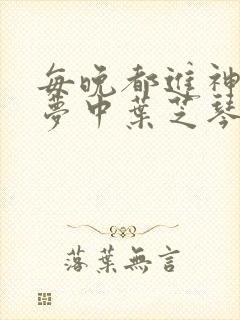 每晚都進神
夢中葉芝琴
落葉無言